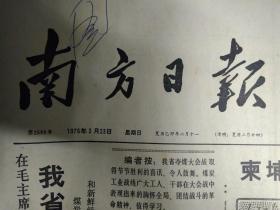 南方日報
1975年3月23日 星期日 夏历乙卯年二月十一 (清明:夏历二月廿四)
在毛主席
我省
和新鲜
编者按:我省夺煤大会战
取得节节胜利的喜讯,令人鼓舞。煤炭
工业战线广大工人、干部在大会战中
表现出来的胸怀全局,团结战斗的革
命精神,值得学习。
柬埔